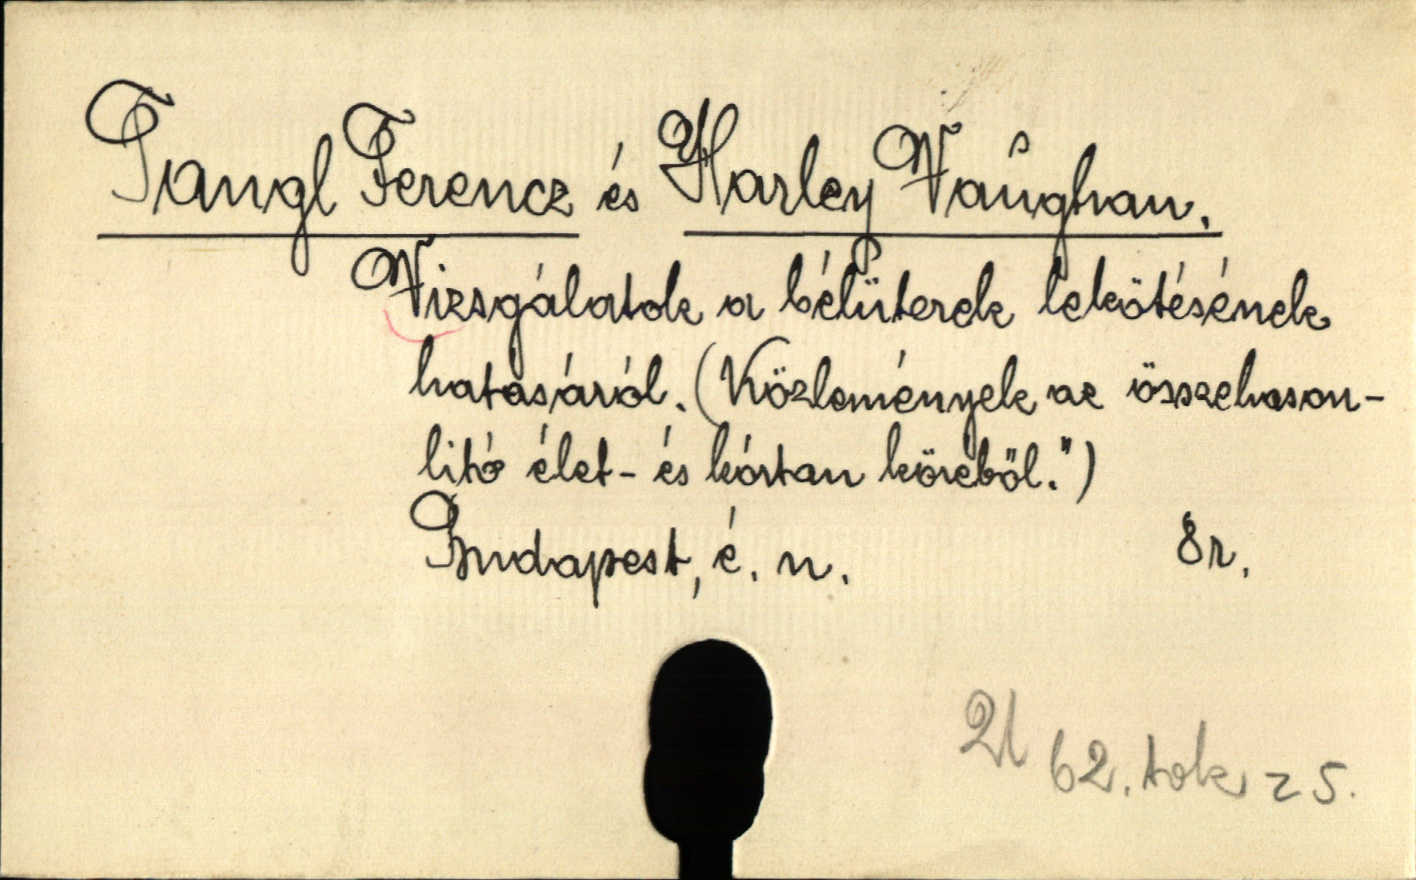 Tangl Ferencz és Harley Vaughan.
Vizsgálatok a bélüterek lekötésének
hatásáról. (Közlemények az összehason-
litó élet- és kórtan köréből.")
Budapest, é. n. 8r.
62. tok 25.